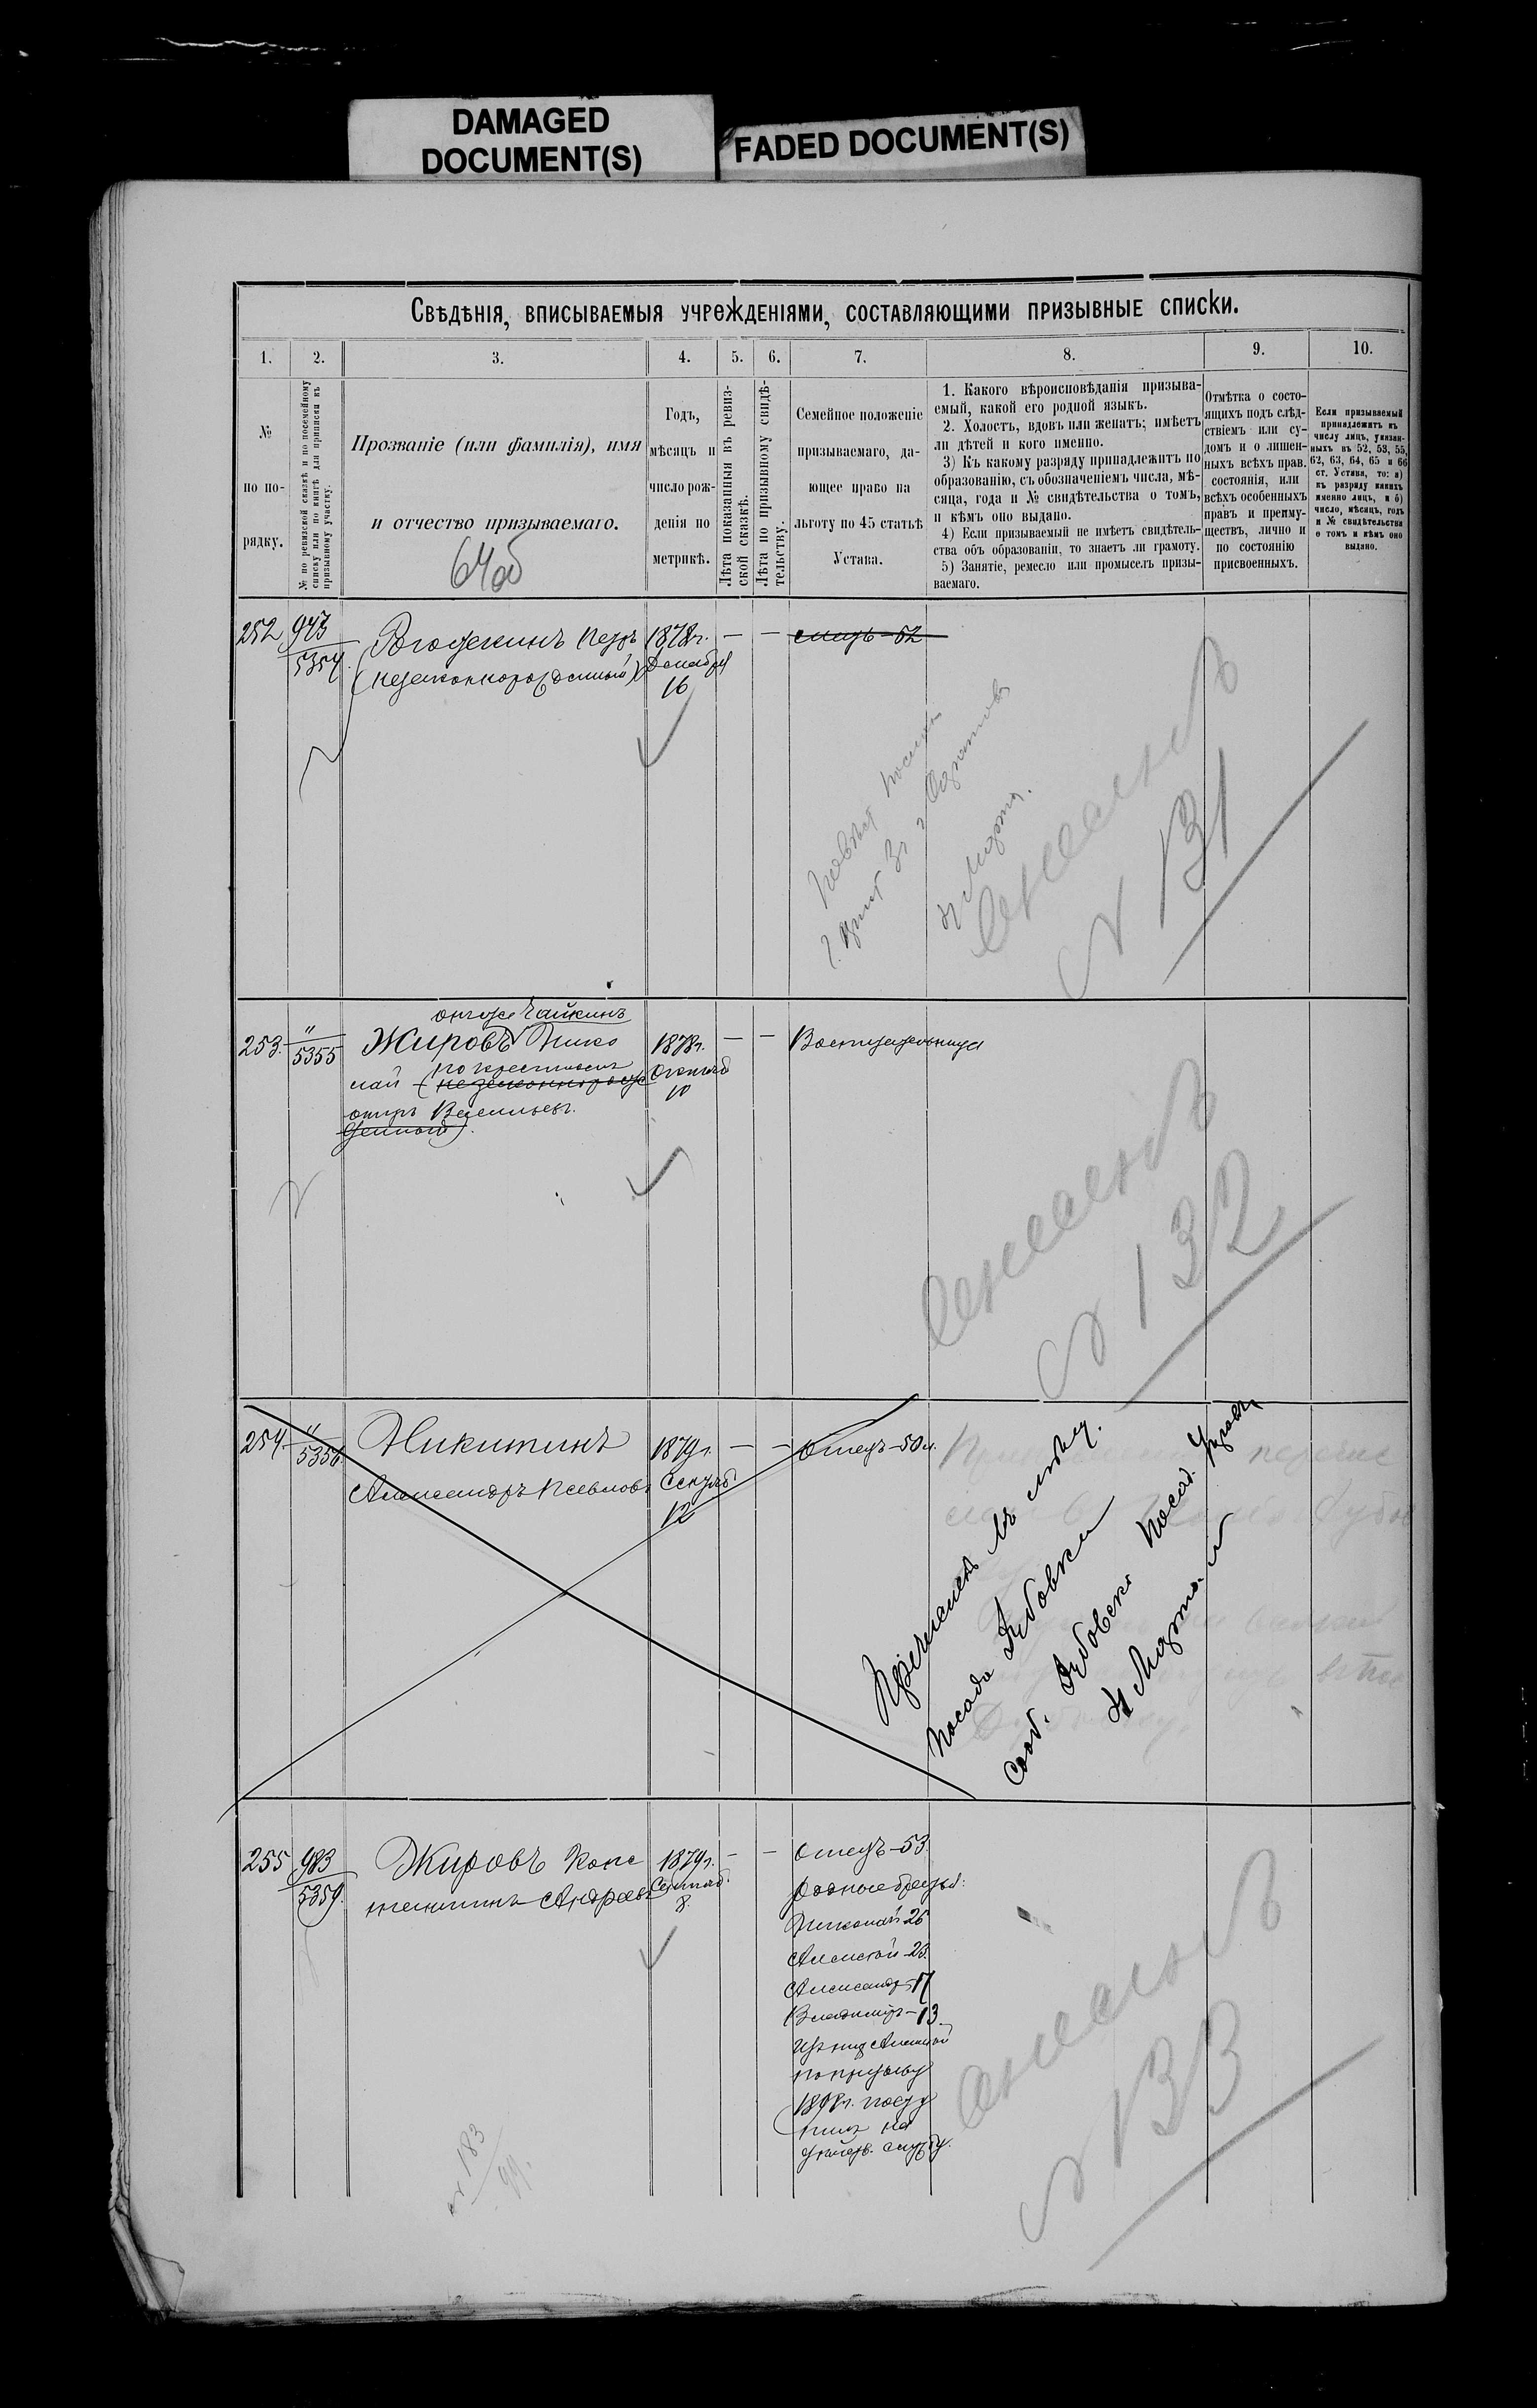 DAMAGED
DOCUMENT(S)
FADED DOCUMENT(S)
Свѣдѣнія, вписываемыя учрежденіями, составляющими призывные списки.
1. 2. 3. 4. 5. 6. 7. 8. 9. 10.
№
по по-
рядку.
№ по ревизской сказкѣ и по посемейному
списку или по книгѣ для приписки къ
призывному участку.
Прозваніе (или фамилія), имя
и отчество призываемаго.
Годъ,
мѣсяцъ и
число рож-
денія по
метрикѣ.
Лѣта показанныя въ ревиз-
ской сказкѣ.
Лѣта по призывному свидѣ-
тельству.
Семейное положеніе
призываемаго, да-
ющее право на
льготу по 45 статьѣ
Устава.
1. Какого вѣроисповѣданія призыва-
емый, какой его родной языкъ.
2. Холостъ, вдовъ или женатъ; имѣетъ
ли дѣтей и кого именно.
3) Къ какому разряду принадлежитъ по
образованію, съ обозначеніемъ числа, мѣ-
сяца, года и № свидѣтельства о томъ,
и кѣмъ оно выдано.
4) Если призываемый не имѣетъ свидѣтель-
ства объ образованіи, то знаетъ ли грамоту.
5) Занятіе, ремесло или промыселъ призы-
ваемаго.
Отмѣтка о состо-
ящихъ подъ слѣд-
ствіемъ или су-
домъ и о лишен-
ныхъ всѣхъ прав.
состоянія, или
всѣхъ особенныхъ
правъ и преиму-
ществъ, лично и
по состоянію
присвоенныхъ.
Если призываемый
принадлежитъ къ
числу лицъ, указан-
ныхъ въ 52, 53, 55,
62, 63, 64, 65 и 66
ст. Устава, то: а)
къ разряду какихъ
именно лицъ, и б)
число, мѣсяцъ, годъ
и № свидѣтельства
о томъ и кѣмъ оно
выдано.
64об
252 943 Петръ 1878г. — — отецъ-52
5354. (незаконнорожденный) Декабря
16
4 Марта.
№ 131
онъ же Чайкинъ
253. " Жировъ Нико 1878г. — — Воспитательница
5355
лай (незаконнорож по крестному
Октяб
10
отцу Васильевъ.
денный).
№ 132
254. " Никитинъ 1879г. — — Отецъ-50л.
5356
Александръ Павловъ Сентяб
12
Перечисленъ въ
посада Дубовки
сооб. Дубовск. посад. Управы
4 Марта
255 983 Жировъ Конс 1879г. — — Отецъ-53.
5359. тантинъ Андреевъ Сентяб.
8.
родные братья:
Николай-26
Алексѣй-23.
Александръ-17
Владиміръ-13
Изъ них Алексѣй
по призыву
1898г. посту
пилъ на
дѣйств. службу.
№ 133
№ 183
99.